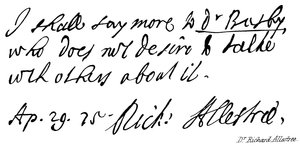 I shall say more to Dr Busby
who does not desire to talke
with others about it.
Ap. 29. 75. Rich: Allestree.
Dr Richard Allestree.